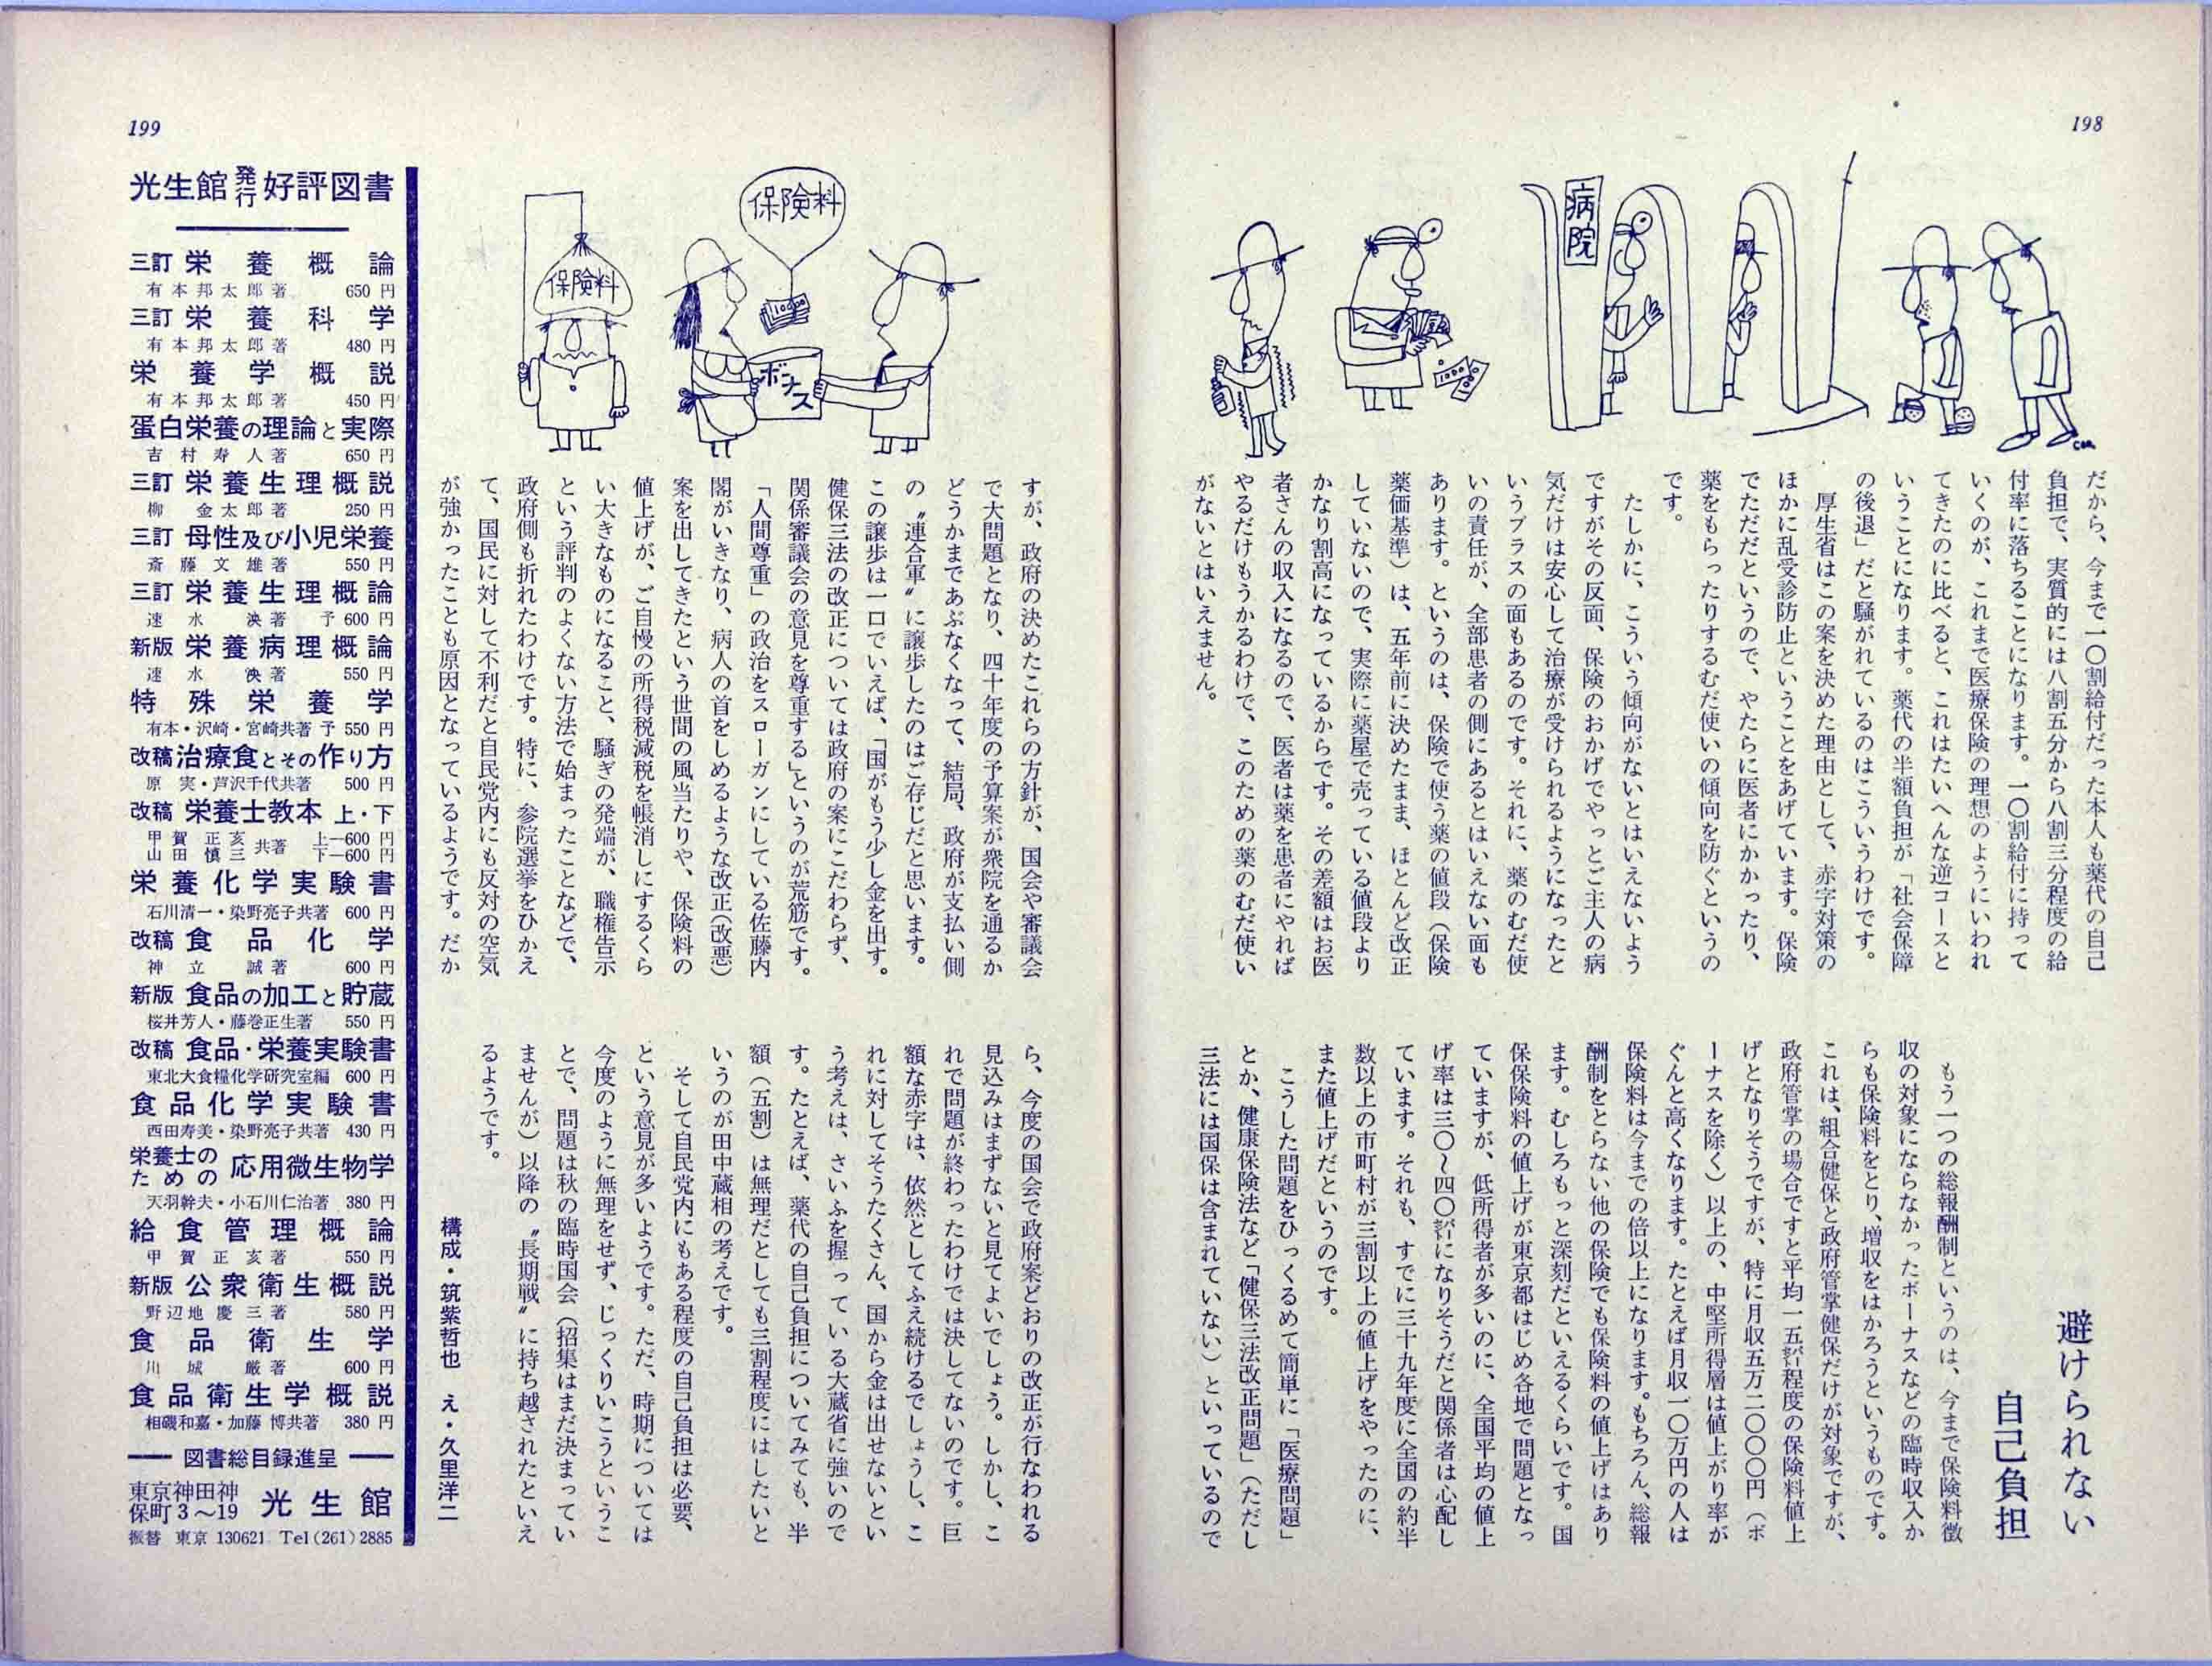 198
病院
だから、今まで一〇割給付だった本人も薬代の自己
負担で、実質的には八割五分から八割三分程度の給
付率に落ちることになります。一〇割給付に持って
いくのが、これまで医療保険の理想のようにいわれ
てきたのに比べると、これはたいへんな逆コースと
いうことになります。薬代の半額負担が「社会保障
の後退」だと騒がれているのはこういうわけです。
厚生省はこの案を決めた理由として、赤字対策の
ほかに乱受診防止ということをあげています。保険
でただだというので、やたらに医者にかかったり、
薬をもらったりするむだ使いの傾向を防ぐというの
です。
たしかに、こういう傾向がないとはいえないよう
ですがその反面、保険のおかげでやっとご主人の病
気だけは安心して治療が受けられるようになったと
いうプラスの面もあるのです。それに、薬のむだ使
いの責任が、全部患者の側にあるとはいえない面も
あります。というのは、保険で使う薬の値段（保険
薬価基準）は、五年前に決めたまま、ほとんど改正
していないので、実際に薬屋で売っている値段より
かなり割高になっているからです。その差額はお医
者さんの収入になるので、医者は薬を患者にやれば
やるだけもうかるわけで、このための薬のむだ使い
がないとはいえません。
避けられない
自己負担
もう一つの総報酬制というのは、今まで保険料徴
収の対象にならなかったボーナスなどの臨時収入か
らも保険料をとり、増収をはかろうというものです。
これは、組合健保と政府管掌健保だけが対象ですが、
政府管掌の場合ですと平均一五㌫程度の保険料値上
げとなりそうですが、特に月収五万二〇〇〇円（ボ
ーナスを除く）以上の、中堅所得層は値上がり率が
ぐんと高くなります。たとえば月収一〇万円の人は
保険料は今までの倍以上になります。もちろん、総報
酬制をとらない他の保険でも保険料の値上げはあり
ます。むしろもっと深刻だといえるくらいです。国
保保険料の値上げが東京都はじめ各地で問題となっ
ていますが、低所得者が多いのに、全国平均の値上
げ率は三〇〜四〇㌫になりそうだと関係者は心配し
ています。それも、すでに三十九年度に全国の約半
数以上の市町村が三割以上の値上げをやったのに、
また値上げだというのです。
こうした問題をひっくるめて簡単に「医療問題」
とか、健康保険法など「健保三法改正問題」（ただし
三法には国保は含まれていない）といっているので
199
保険料
ボーナス
保険料
すが、政府の決めたこれらの方針が、国会や審議会
で大問題となり、四十年度の予算案が衆院を通るか
どうかまであぶなくなって、結局、政府が支払い側
の〝連合軍〟に譲歩したのはご存じだと思います。
この譲歩は一口でいえば、「国がもう少し金を出す。
健保三法の改正については政府の案にこだわらず、
関係審議会の意見を尊重する」というのが荒筋です。
「人間尊重」の政治をスローガンにしている佐藤内
閣がいきなり、病人の首をしめるような改正（改悪）
案を出してきたという世間の風当たりや、保険料の
値上げが、ご自慢の所得税減税を帳消しにするくら
い大きなものになること、騒ぎの発端が、職権告示
という評判のよくない方法で始まったことなどで、
政府側も折れたわけです。特に、参院選挙をひかえ
て、国民に対して不利だと自民党内にも反対の空気
が強かったことも原因となっているようです。だか
ら、今度の国会で政府案どおりの改正が行なわれる
見込みはまずないと見てよいでしょう。しかし、こ
れで問題が終わったわけでは決してないのです。巨
額な赤字は、依然としてふえ続けるでしょうし、こ
れに対してそうたくさん、国から金は出せないとい
う考えは、さいふを握っている大蔵省に強いので
す。たとえば、薬代の自己負担についてみても、半
額（五割）は無理だとしても三割程度にはしたいと
いうのが田中蔵相の考えです。
そして自民党内にもある程度の自己負担は必要、
という意見が多いようです。ただ、時期については
今度のように無理をせず、じっくりいこうというこ
とで、問題は秋の臨時国会（招集はまだ決まってい
ませんが）以降の〝長期戦〟に持ち越されたといえ
るようです。
構成・筑紫哲也　え・久里洋二
光生館発行好評図書
三訂 栄養概論
有本邦太郎著 650円
三訂 栄養科学
有本邦太郎著 480円
栄養学概説
有本邦太郎著 450円
蛋白栄養の理論と実際
吉村寿人著 650円
三訂 栄養生理概説
柳金太郎著 250円
三訂 母性及び小児栄養
斎藤文雄著 550円
三訂 栄養生理概論
速水泱著 予600円
新版 栄養病理概論
速水泱著 550円
特殊栄養学
有本・沢崎・宮崎共著 予550円
改稿 治療食とその作り方
原実・芦沢千代共著 500円
改稿 栄養士教本 上・下
甲賀正亥 山田慎三 共著 上—600円 下—600円
栄養化学実験書
石川清一・染野亮子共著 600円
改稿 食品化学
神立誠著 600円
新版 食品の加工と貯蔵
桜井芳人・藤巻正生著 550円
改稿 食品・栄養実験書
東北大食糧化学研究室編 600円
食品化学実験書
西田寿美・染野亮子共著 430円
栄養士のための 応用微生物学
天羽幹夫・小石川仁治著 380円
給食管理概論
甲賀正亥著 550円
新版 公衆衛生概説
野辺地慶三著 580円
食品衛生学
川城巌著 600円
食品衛生学概説
相磯和嘉・加藤博共著 380円
図書総目録進呈
東京神田神保町3〜19 光生館
振替 東京 130621 Tel(261)2885